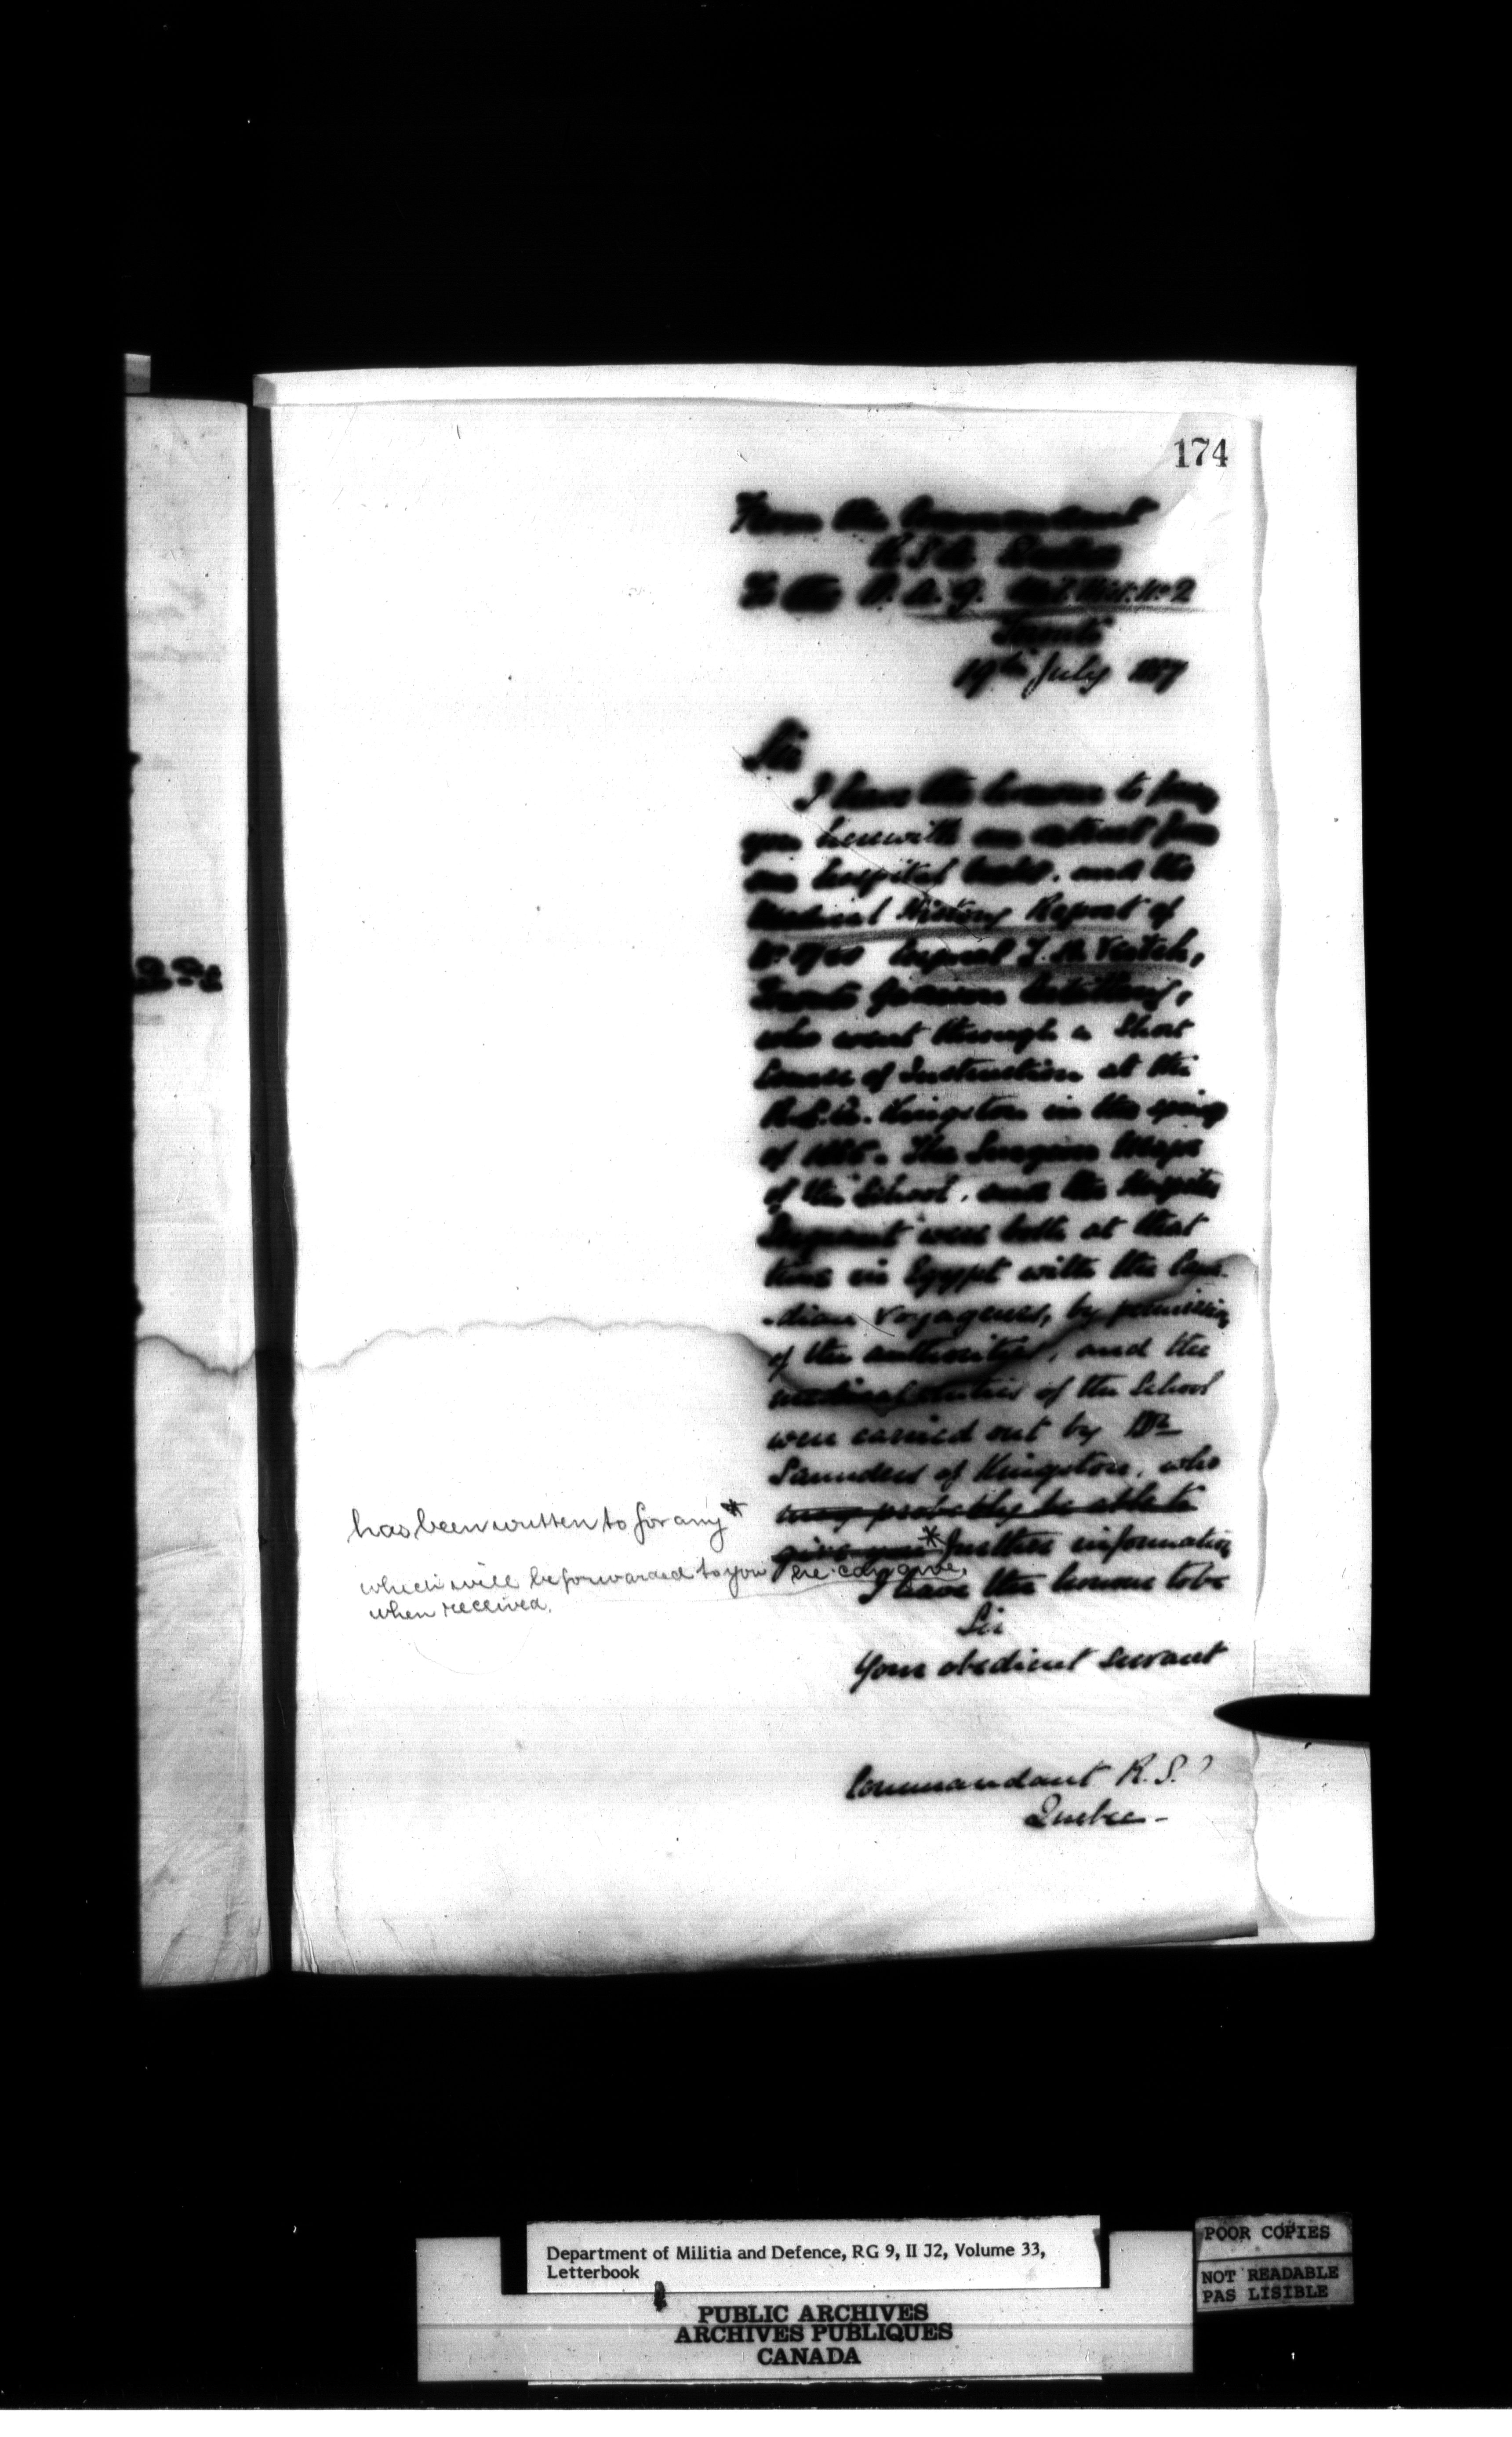 174
From the Commandant
R.S.A. Quebec
To the D.A.G. Mil. Dist. No 2
Toronto
19th July 1887
Sir
I have the honour to
you herewith an extract from
our hospital books, and the
Medical History Report of
No Corporal J. R. Veitch,
Toronto Garrison Artillery,
who went through a Short
Course of Instruction at the
R.S.A. Kingston in the spring
of 1885. The Surgeon Major
of the School, and the Hospital
Sergeant were both at that
time in Egypt with the Cana-
-dian Voyageurs, by permission
of the authorities, and the
medical duties of the School
were carried out by Dr
Saunders of Kingston, who
may probably be able to
has been written to for any *
give you * further information
which will be forwarded to you he can give.
when received.
I have the honour to be
Sir
Your obedient Servant
Commandant R.S.
Quebec -
Department of Militia and Defence, RG 9, II J2, Volume 33,
Letterbook
PUBLIC ARCHIVES
ARCHIVES PUBLIQUES
CANADA
POOR COPIES
NOT READABLE
PAS LISIBLE